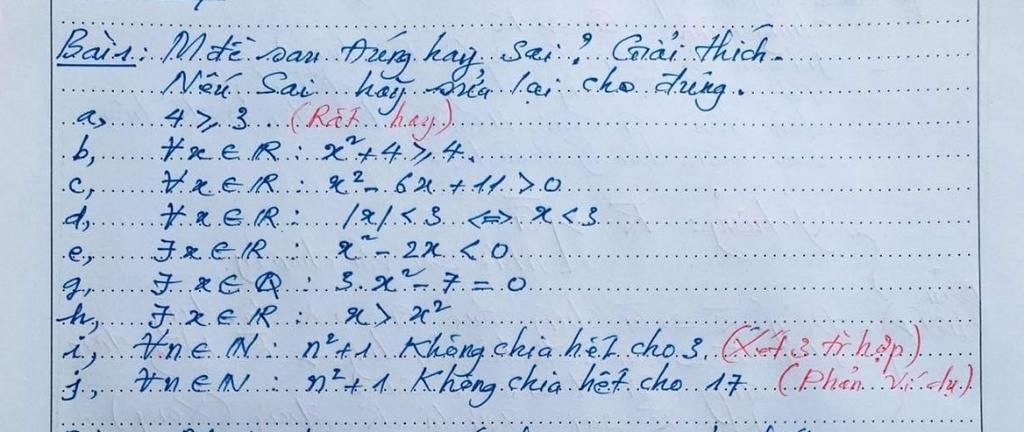 Bài 1: M.đề sau đúng hay sai? Giải thích.
Nếu Sai hãy sửa lại cho đúng.
a, 4 ⩾ 3 (Rất hay)
b, ∀x ∈ ℝ : x² + 4 ⩾ 4.
c, ∀x ∈ ℝ : x² - 6x + 11 > 0
d, ∀x ∈ ℝ : |x| < 3 ⇔ x < 3
e, ∃x ∈ ℝ : x² - 2x < 0
g, ∃x ∈ ℚ : 3.x² - 7 = 0
h, ∃x ∈ ℝ : x > x²
i, ∀n ∈ ℕ : n² + 1 Không chia hết cho 3. (Xét 3 tr hợp)
j, ∀n ∈ ℕ : n² + 1 Không chia hết cho 17 (Phản ví dụ.)